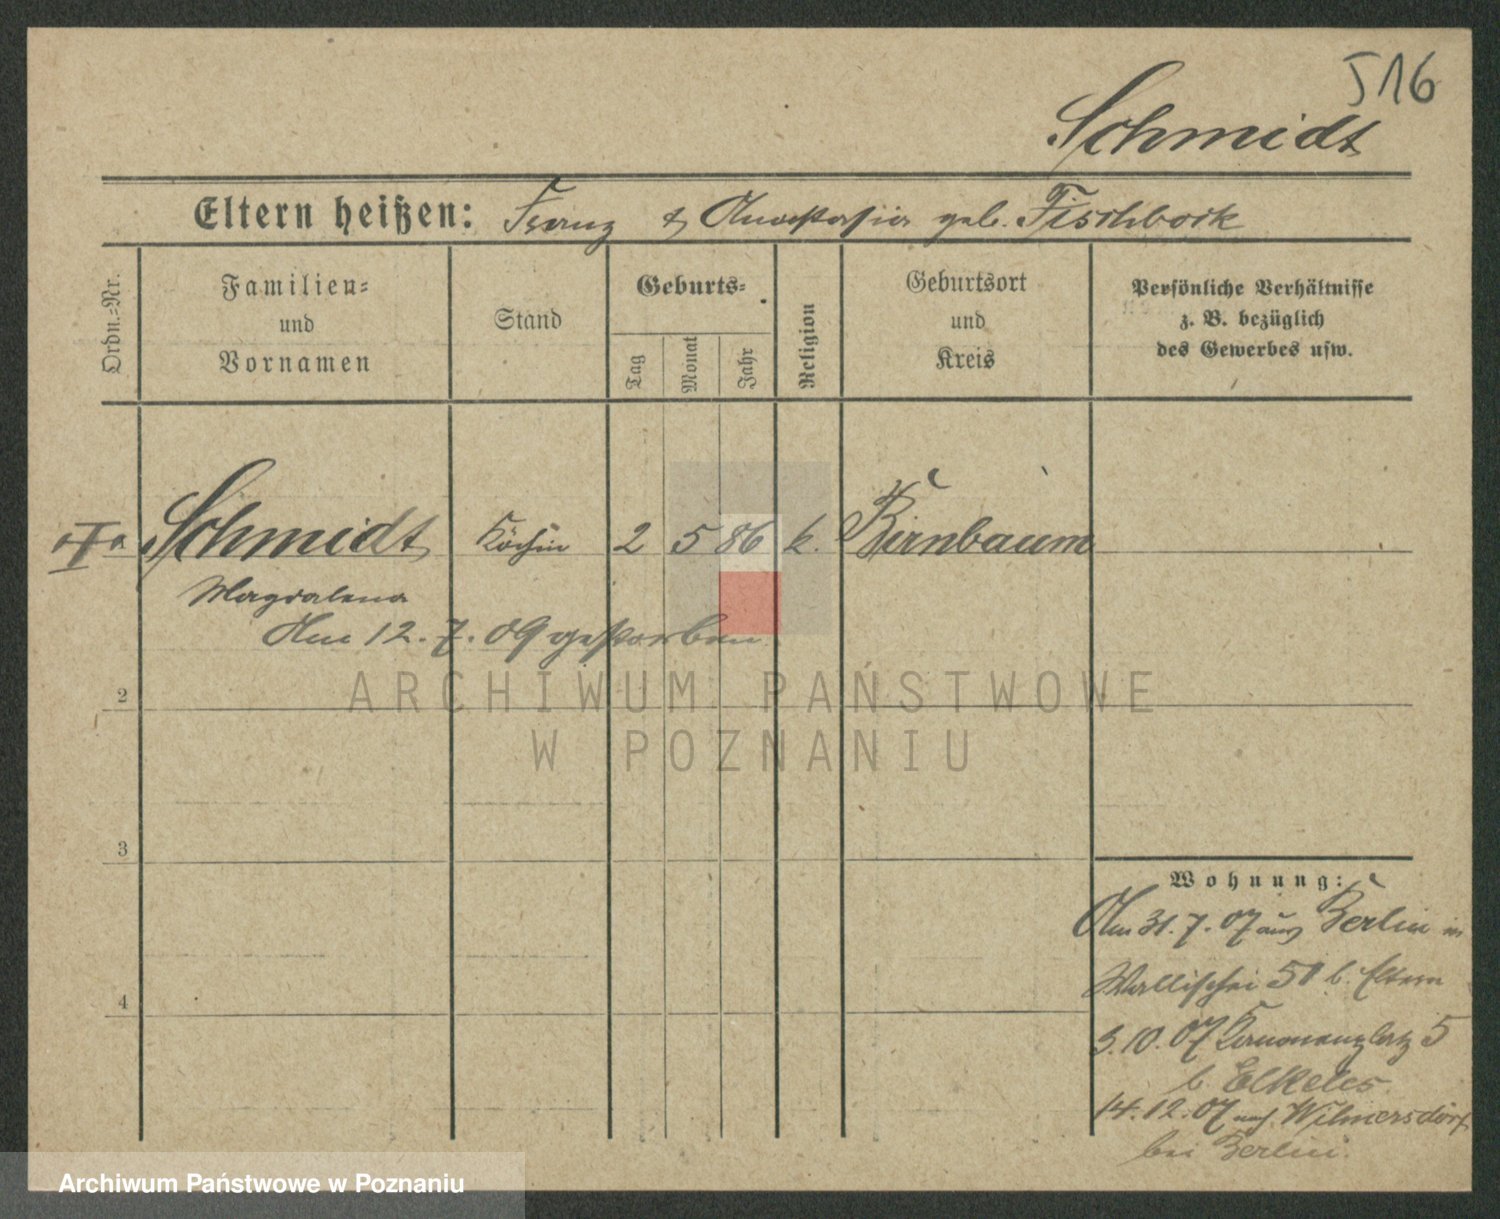 516
Schmidt
Eltern heißen: Franz & Anastasia geb. Fischbock
Ordn.=Nr.
Familien=
und
Vornamen
Stand
Geburts=
Tag
Monat
Jahr
Religion
Geburtsort
und
Kreis
Persönliche Verhältnisse
z. B. bezüglich
des Gewerbes usw.
Schmidt Köchin 2 5 86 k. Birnbaum
Magdalena
Am 12.7.09 gestorben
2
3
4
Wohnung:
Am 31.7.07 aus Berlin in
Wallischei 50 b. Eltern
3.10.07 Kanonenplatz 5
b Elkeles
14.12.07 nach Wilmersdorf
bei Berlin.
ARCHIWUM PAŃSTWOWE
W POZNANIU
Archiwum Państwowe w Poznaniu